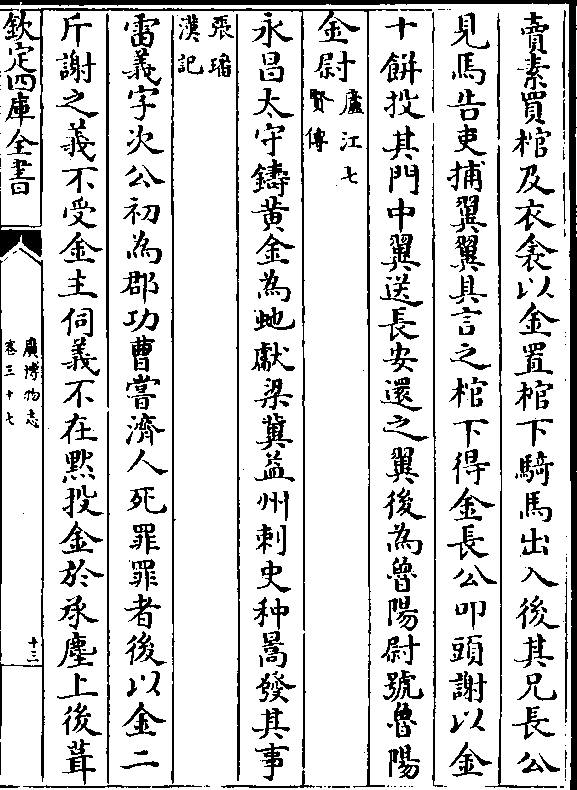 賣素買棺及衣衾以金置棺下騎馬出入後其兄長公
見馬告吏捕翼翼具言之棺下得金長公叩頭謝以金
十餅投其門中翼送長安還之翼後為魯陽尉號魯陽
金尉廬江七
賢傳
永昌太守鑄黃金為虵獻梁冀益州刺史种暠發其事
張璠
漢記
雷義字次公初為郡功曹嘗濟人死罪罪者後以金二
斤謝之義不受金主伺義不在黙投金於承塵上後葺
欽定四庫全書
廣博物志
卷三十七
十三